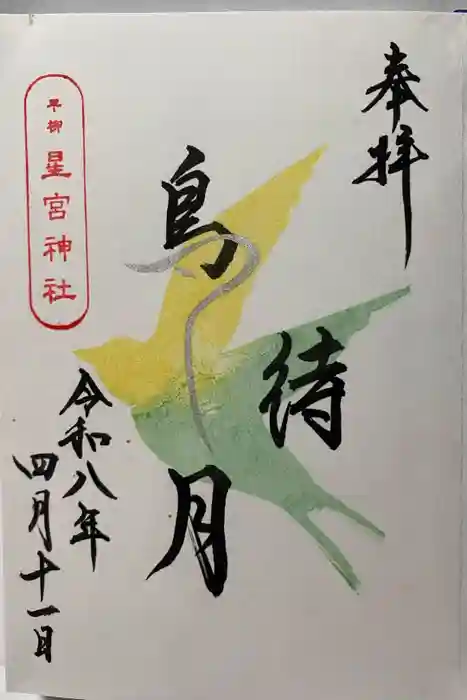 奉拝
鳥待月
早柳
星宮神社
令和八年
四月十一日